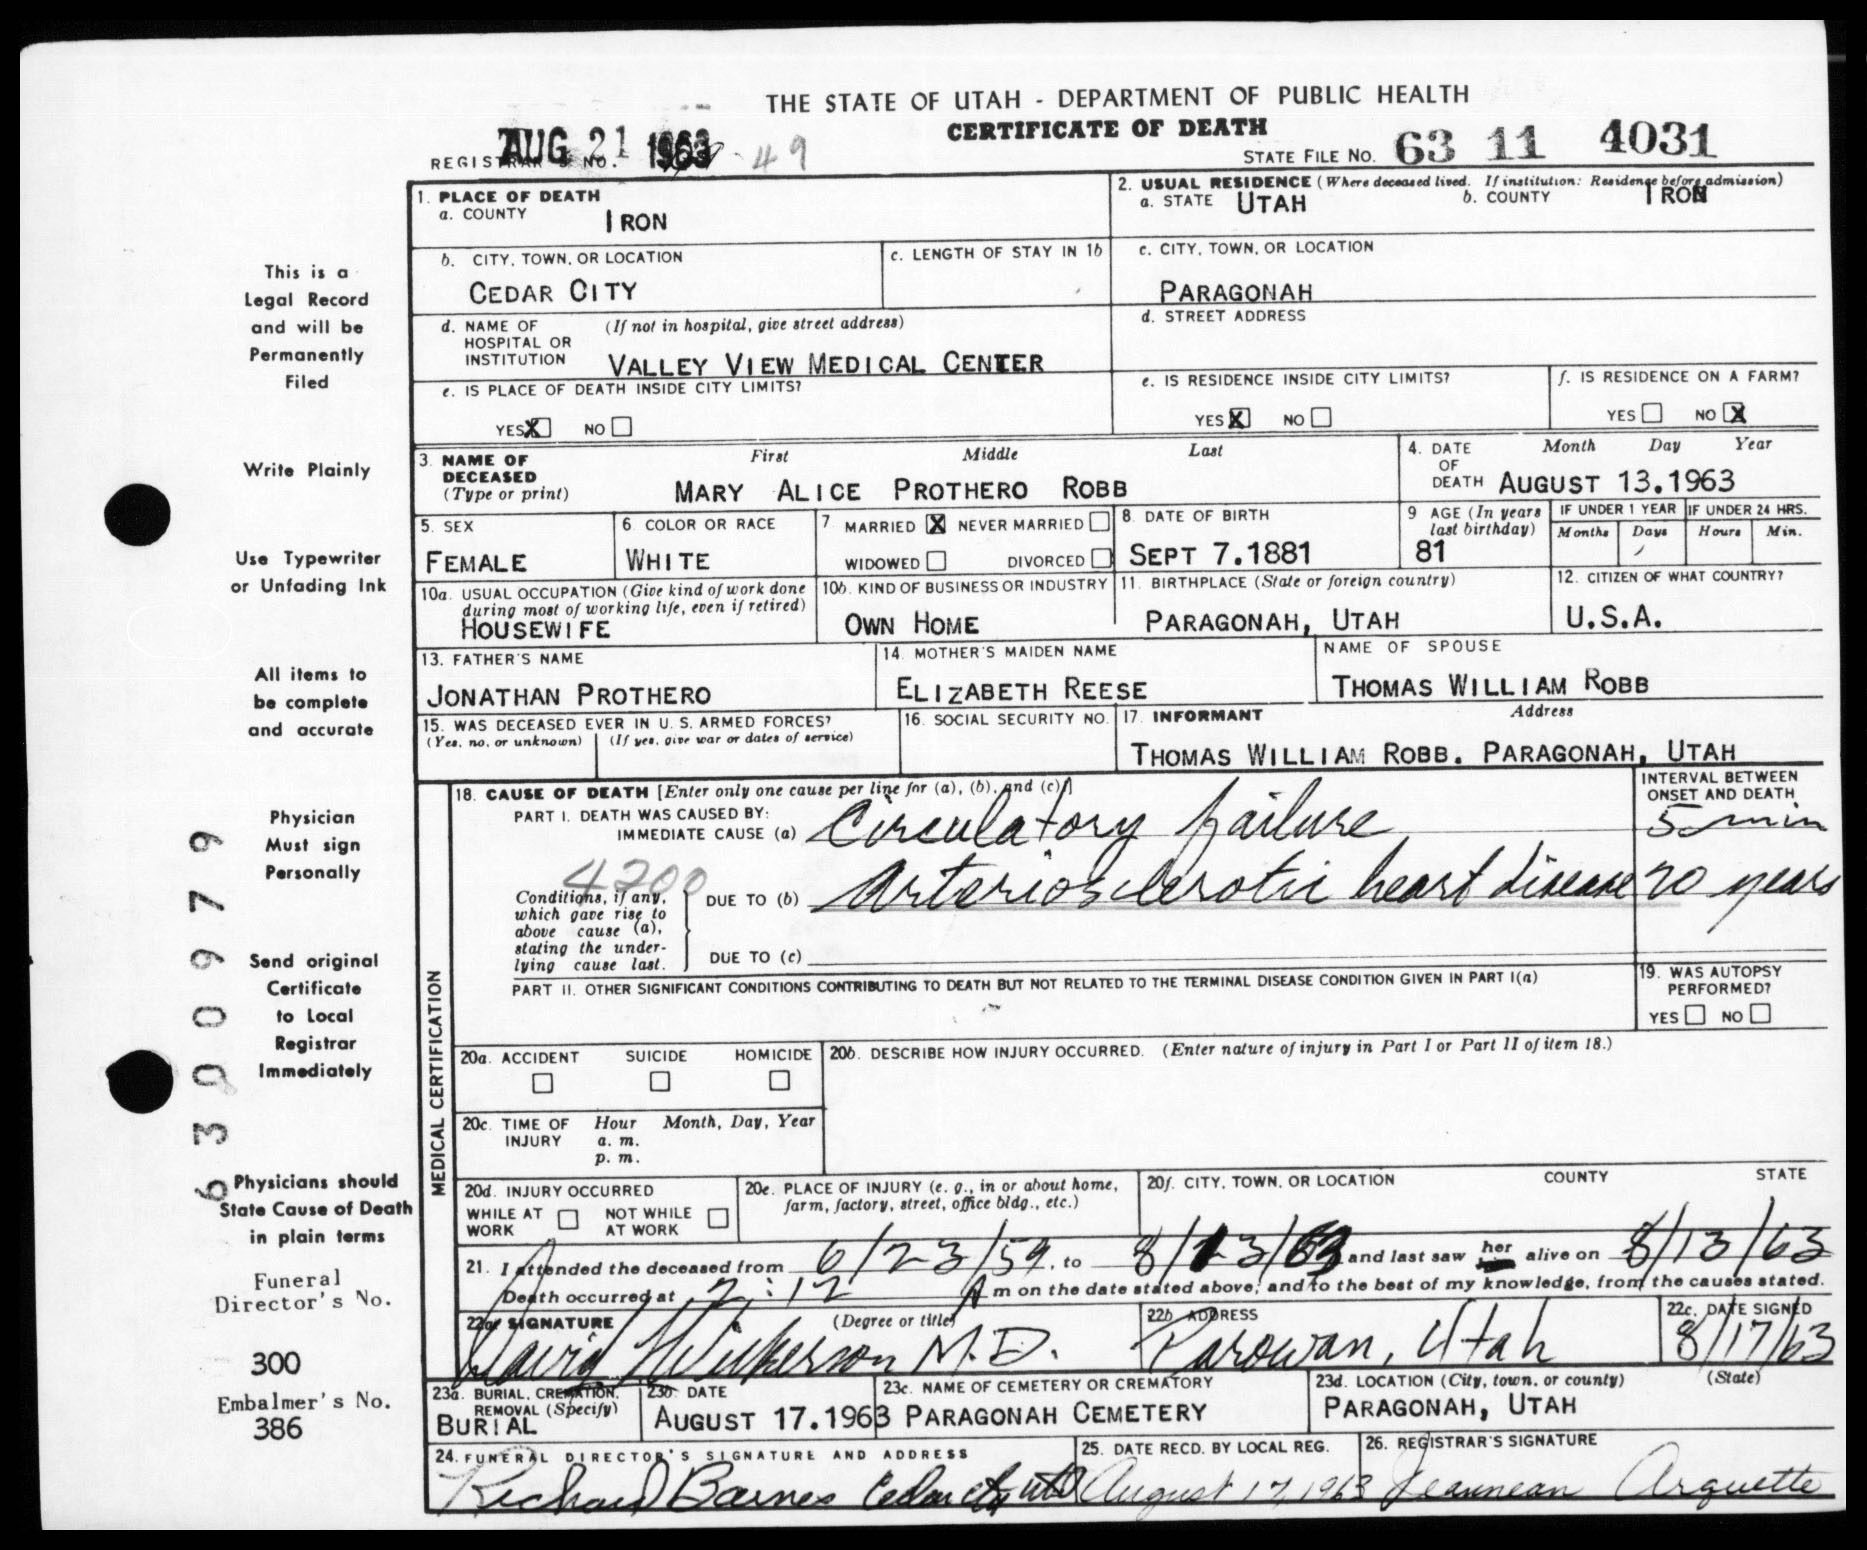 THE STATE OF UTAH - DEPARTMENT OF PUBLIC HEALTH
CERTIFICATE OF DEATH
REGISTRAR'S NO. AUG 21 1963 49
STATE FILE NO. 63 11 4031
1. PLACE OF DEATH
a. COUNTY IRON
2. USUAL RESIDENCE (Where deceased lived. If institution: Residence before admission)
a. STATE UTAH b. COUNTY IRON
b. CITY, TOWN, OR LOCATION
CEDAR CITY
c. LENGTH OF STAY IN 1b
c. CITY, TOWN, OR LOCATION
PARAGONAH
d. NAME OF HOSPITAL OR INSTITUTION (If not in hospital, give street address)
VALLEY VIEW MEDICAL CENTER
d. STREET ADDRESS
e. IS PLACE OF DEATH INSIDE CITY LIMITS?
YES X NO
e. IS RESIDENCE INSIDE CITY LIMITS?
YES X NO
f. IS RESIDENCE ON A FARM?
YES NO X
3. NAME OF DECEASED (Type or print)
First Middle Last
MARY ALICE PROTHERO ROBB
4. DATE OF DEATH Month Day Year
AUGUST 13.1963
5. SEX
FEMALE
6. COLOR OR RACE
WHITE
7. MARRIED X NEVER MARRIED
WIDOWED DIVORCED
8. DATE OF BIRTH
SEPT 7.1881
9. AGE (In years last birthday)
81
IF UNDER 1 YEAR
Months Days
IF UNDER 24 HRS.
Hours Min.
10a. USUAL OCCUPATION (Give kind of work done during most of working life, even if retired)
HOUSEWIFE
10b. KIND OF BUSINESS OR INDUSTRY
OWN HOME
11. BIRTHPLACE (State or foreign country)
PARAGONAH, UTAH
12. CITIZEN OF WHAT COUNTRY?
U.S.A.
13. FATHER'S NAME
JONATHAN PROTHERO
14. MOTHER'S MAIDEN NAME
ELIZABETH REESE
NAME OF SPOUSE
THOMAS WILLIAM ROBB
15. WAS DECEASED EVER IN U.S. ARMED FORCES?
(Yes, no, or unknown) (If yes, give war or dates of service)
16. SOCIAL SECURITY NO.
17. INFORMANT Address
THOMAS WILLIAM ROBB. PARAGONAH, UTAH
MEDICAL CERTIFICATION
18. CAUSE OF DEATH [Enter only one cause per line for (a), (b), and (c)]
INTERVAL BETWEEN ONSET AND DEATH
PART I. DEATH WAS CAUSED BY:
IMMEDIATE CAUSE (a) Circulatory failure 5 min
4200
Conditions, if any, which gave rise to above cause (a), stating the underlying cause last.
DUE TO (b) Arteriosclerotic heart disease 20 years
DUE TO (c)
PART II. OTHER SIGNIFICANT CONDITIONS CONTRIBUTING TO DEATH BUT NOT RELATED TO THE TERMINAL DISEASE CONDITION GIVEN IN PART I(a)
19. WAS AUTOPSY PERFORMED?
YES NO
20a. ACCIDENT SUICIDE HOMICIDE
20b. DESCRIBE HOW INJURY OCCURRED. (Enter nature of injury in Part I or Part II of item 18.)
20c. TIME OF INJURY Hour Month, Day, Year
a. m.
p. m.
20d. INJURY OCCURRED
WHILE AT WORK NOT WHILE AT WORK
20e. PLACE OF INJURY (e. g., in or about home, farm, factory, street, office bldg., etc.)
20f. CITY, TOWN, OR LOCATION COUNTY STATE
21. I attended the deceased from 6/23/59, to 8/13/63 and last saw her alive on 8/13/63
Death occurred at 2:12 A m on the date stated above; and to the best of my knowledge, from the causes stated.
22a. SIGNATURE (Degree or title)
David Wilkerson M.D.
22b. ADDRESS
Parowan, Utah
22c. DATE SIGNED
8/17/63
23a. BURIAL, CREMATION, REMOVAL (Specify)
BURIAL
23b. DATE
AUGUST 17.1963
23c. NAME OF CEMETERY OR CREMATORY
PARAGONAH CEMETERY
23d. LOCATION (City, town, or county) (State)
PARAGONAH, UTAH
24. FUNERAL DIRECTOR'S SIGNATURE AND ADDRESS
Richard Barnes Cedar City Utah
25. DATE RECD. BY LOCAL REG.
August 17, 1963
26. REGISTRAR'S SIGNATURE
Jeannean Arquette
This is a
Legal Record
and will be
Permanently
Filed
Write Plainly
Use Typewriter
or Unfading Ink
All items to
be complete
and accurate
Physician
Must sign
Personally
Send original
Certificate
to Local
Registrar
Immediately
Physicians should
State Cause of Death
in plain terms
Funeral
Director's No.
300
Embalmer's No.
386
6300979